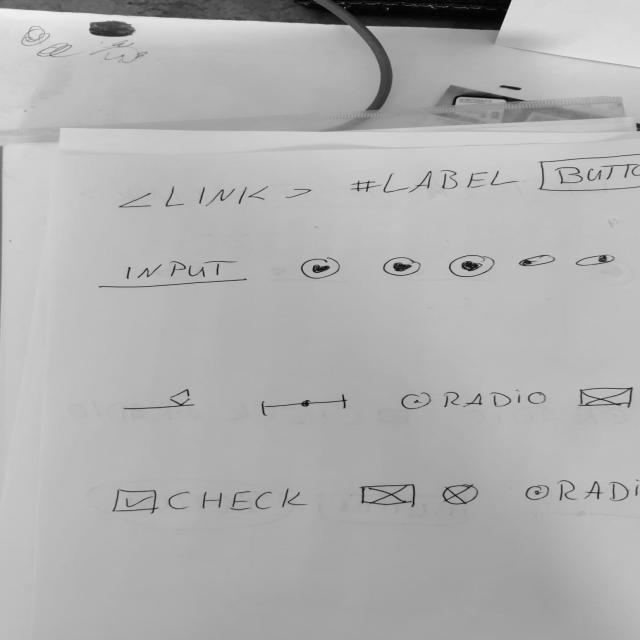 <LINK> #LABEL BUTTO
INPUT
RADIO
CHECK RADI